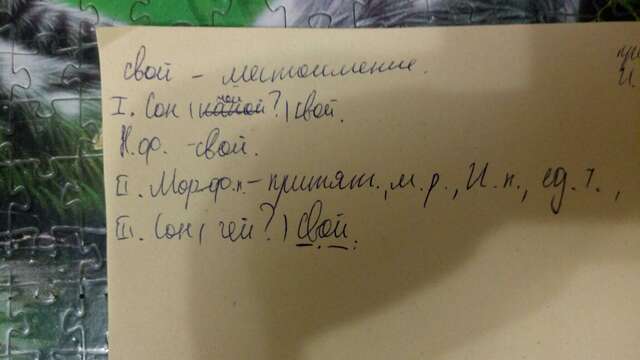 свой - местоимение.
I. Сон (какой чей?) свой.
Н.ф. - свой.
II. Морф.п. - притяж., м.р., И.п., ед.ч.,
III. Сон (чей?) свой.
И.